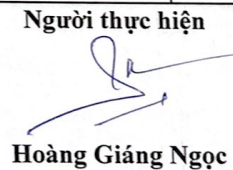 Người thực hiện
Hoàng Giáng Ngọc